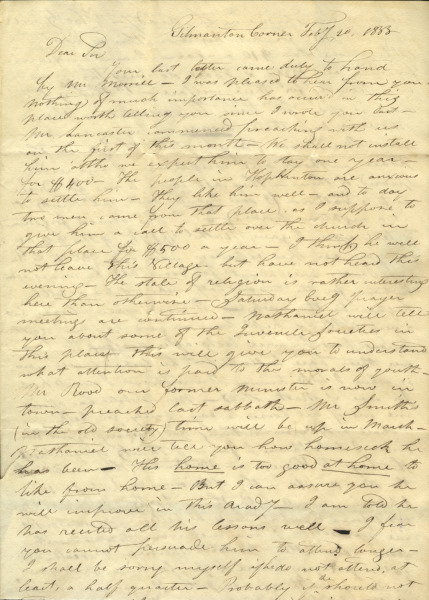 Gilmanton Corner Feby 20. 1835
Dear Sir
Your last letter came duly to hand
by Mr Morrill — I was pleased to hear from you
nothing of much importance has occured in this
place worth telling you since I wrote you last —
Mr Lancaster commenced preaching with us
on the first of this month — We shall not install
him; tho we expect him to stay one year —
for $400 — The people in Hopkinton are anxious
to settle him — They like him well — and to day
two men came from that place, as I suppose to
give him a call to settle over the church in
that place for $500 a year — I think he will
not leave this village, but have not heard this
evening — The state of religion is rather interesting
here than otherwise — Saturday eveg prayer
meeting are continued — Nathaniel will tell
you about some of the Juvenile Societies in
this place this will give you to understand
what attention is paid to the morals of youth —
Mr Rood our former minister is now in
town — preached last sabbath — Mr Smith's
(in the old society) time will be up in March —
Nathaniel will tell you how homesick he
has been — His home is too good at home to
like from home — But I can assure you he
will improve in this Acady — I am told he
has recited all his lessons well — I fear
you cannot persuade him to attend longer —
I shall be sorry myself if he do not attend, at
least, a half quarter — Probably it should not